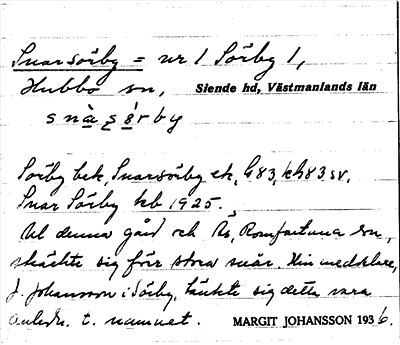 Snarsörby = nr 1 Sörby 1,
Hubbo sn, Siende hd, Västmanlands län
snàʂórby
Sörby bek, Snarsörby ek, G83, kh83 sv.
Snar Sörby kb 1925.
Ut denna gård och Ås, Romfartuna sn,
skäckte sig förr stora snår. Min meddelare,
J. Johansson i Sörby, tänkte sig detta vara
anledn. t. namnet. MARGIT JOHANSSON 1936.